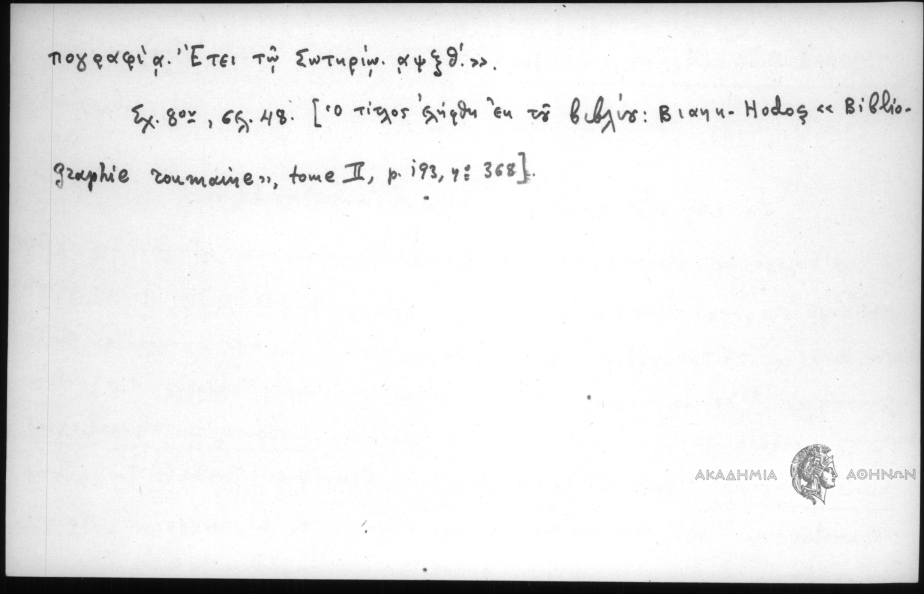 πογραφίᾳ. Ἔτει τῷ Σωτηρίῳ. αψξθ΄.».
Σχ. 8ον, σελ. 48. [Ὁ τίτλος ἐλήφθη ἐκ τοῦ βιβλίου: Bianu-Hodoş «Biblio-
graphie roumaine», tome II, p. 193, No 368].
ΑΚΑΔΗΜΙΑ ΑΘΗΝΩΝ